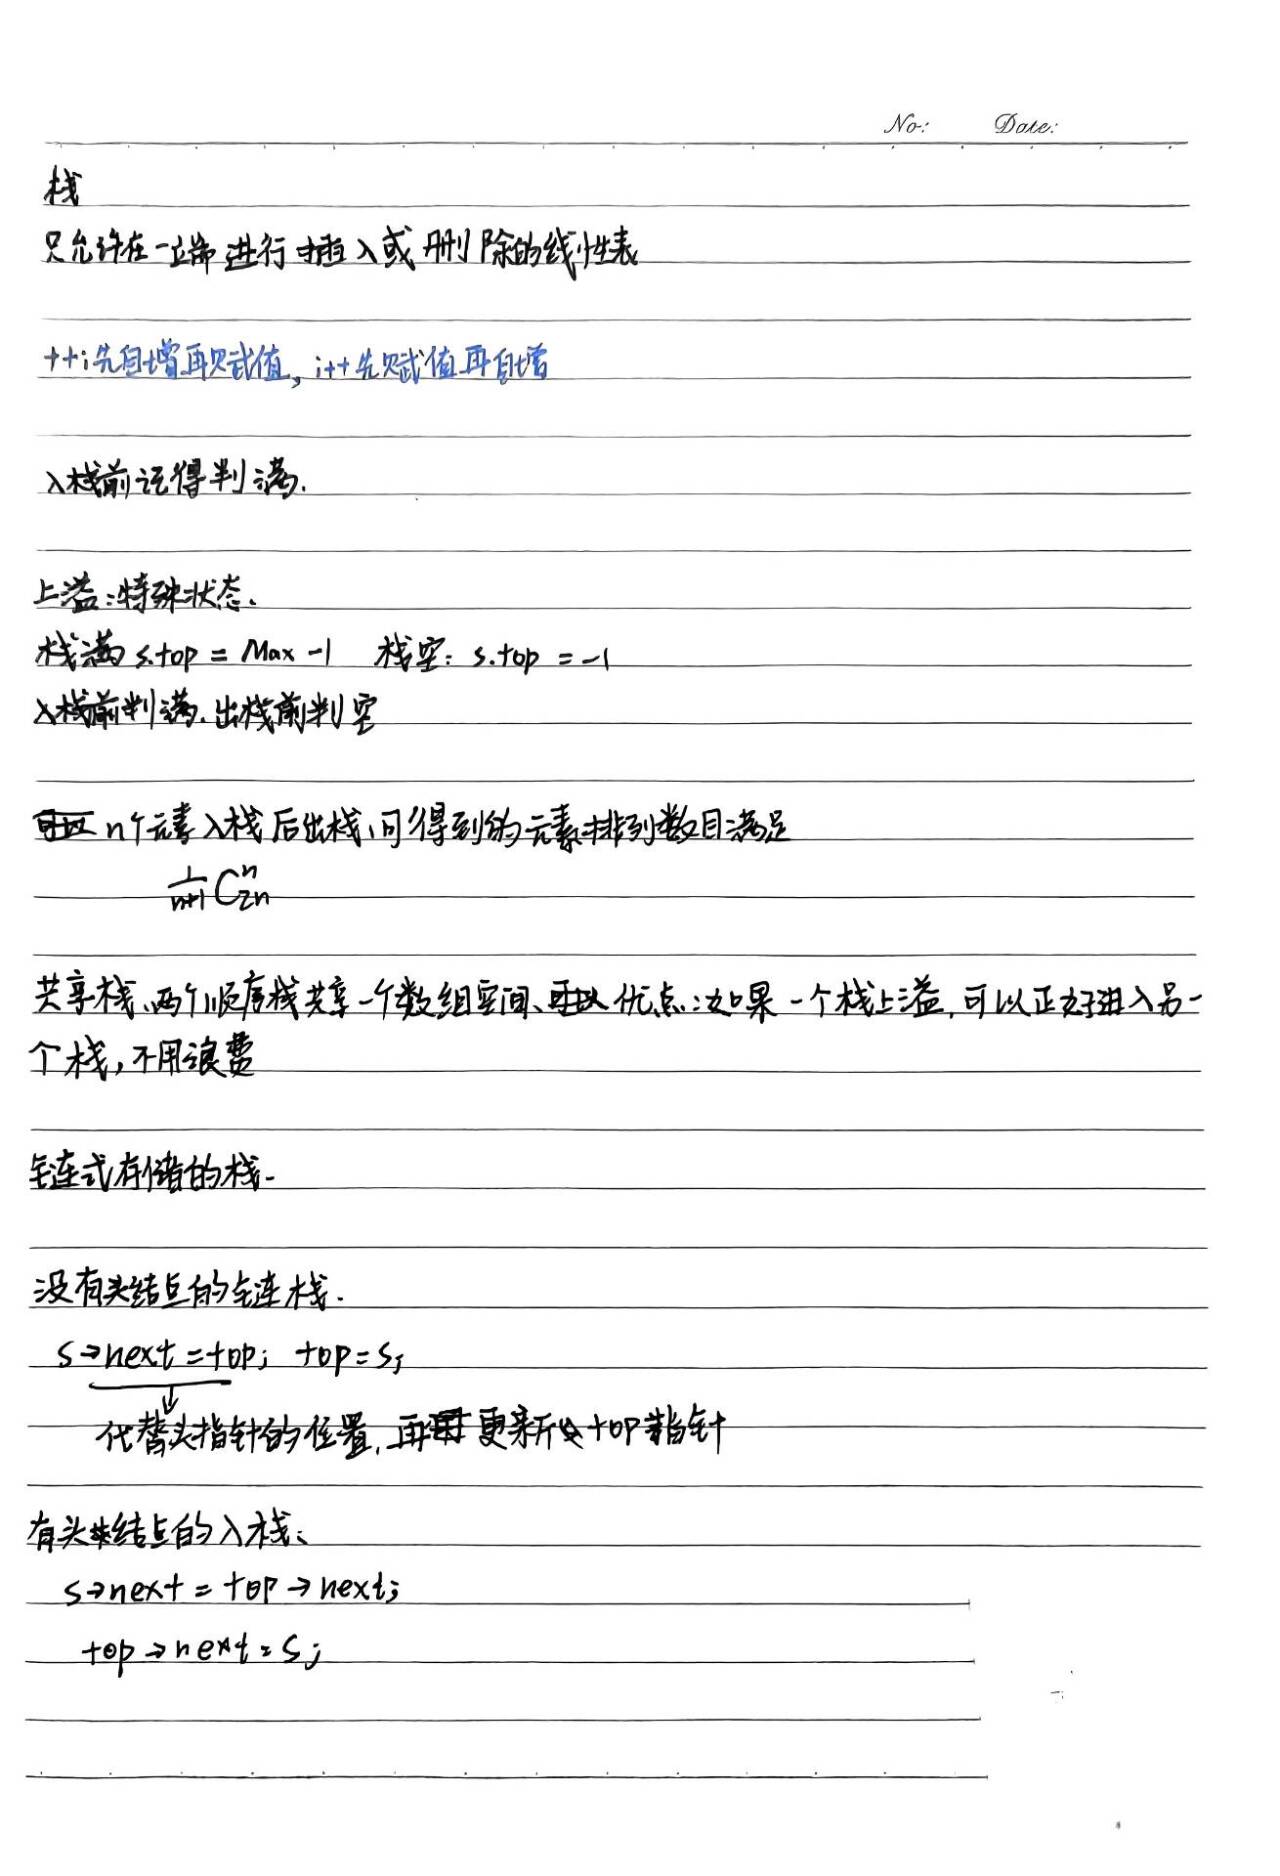 No: Date:
栈
只允许在一端进行插入或删除的线性表
++i先自增再赋值, i++先赋值再自增
入栈前记得判满.
上溢:特殊状态.
栈满 s.top = Max -1 栈空: s.top = -1
入栈前判满.出栈前判空
n个元素入栈后出栈、可得到的元素排列数目满足
1/(n+1) C_{2n}^{n}
共享栈、两个顺序栈共享一个数组空间、优点:如果一个栈上溢,可以正好进入另一
个栈,不用浪费
链式存储的栈.
没有头结点的链栈.
s→next = top; top = s;
代替头指针的位置,再更新top指针
有头结点的入栈:
s→next = top→next;
top→next = s;